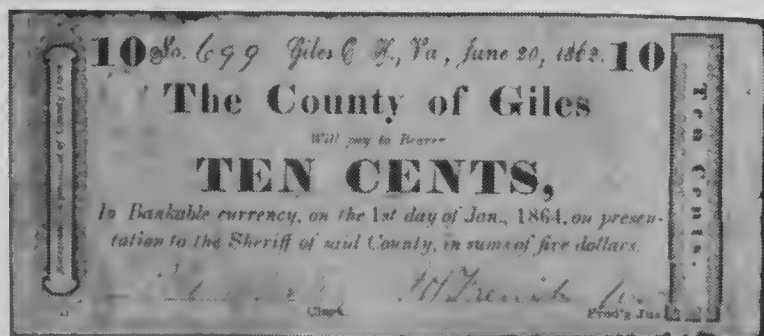 10 No. 699 Giles C. H., Va, June 20, 1862. 10
The County of Giles
Will pay to Bearer
TEN CENTS,
In Bankable currency, on the 1st day of Jan., 1864, on presen-
tation to the Sheriff of said County, in sums of five dollars.
Clerk.
Ten Cents.